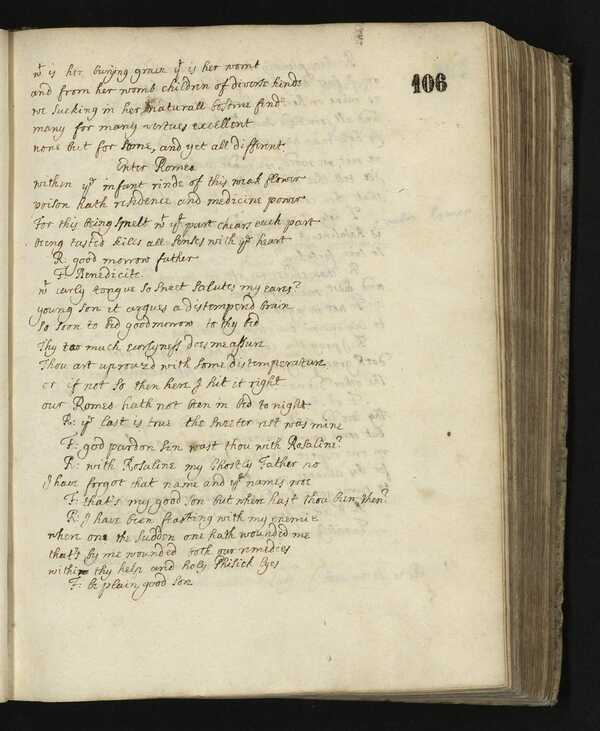 106
wt is her burying grave yt is her womb
and from her womb children of diverse kinds
we sucking in her naturall bosome find
many for many vertues excellent
none but for some, and yet all different
Enter Romeo
within ye infant rinde of this weak flower
poison hath residence and medicine power
For this being smelt wt yt part chears each part
being tasted kills all senses with ye heart
R: good morrow father
F: Benedicite
wt early tongue so sweet salutes my eares?
young son it argues a distemperd brain
so soon to bid goodmorow to thy bed
Thy too much earlyness does me assure
Thou art uprouzd with some distemperature
or if not so then here I hit it right
our Romeo hath not been in bed to night
R: yt last is true the sweeter rest was mine
F: god pardon sin wast thou with Rosaline?
R: with Rosaline my Ghostly Father no
I have forgot that name and yt names woe
F: that's my good son but where hast thou been then?
R: I have been feasting with my enemie
where one the sudden one hath wounded me
that's by me wounded both our remedies
within thy help and holy Phisick lyes
F: be plain good son